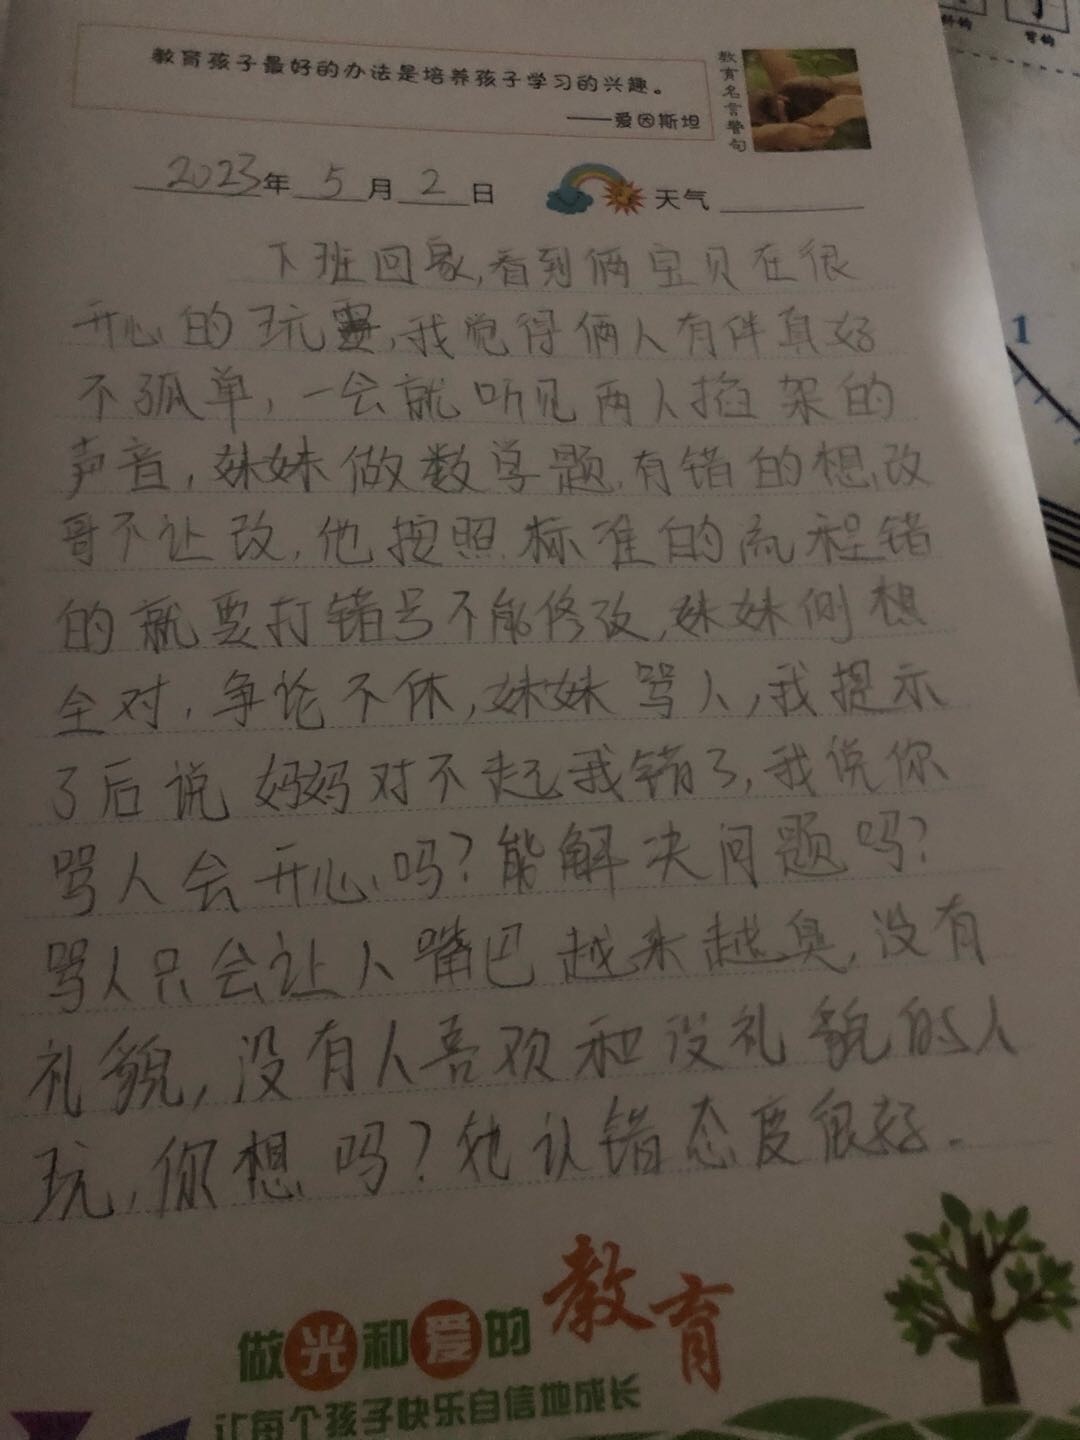 教育孩子最好的办法是培养孩子学习的兴趣。
——爱因斯坦
教育名言警句
2023年 5月 2日 天气
下班回家,看到俩宝贝在很
开心的玩,我觉得俩人有伴真好
不孤单,一会就听见两人掐架的
声音,妹妹做数学题,有错的想改
哥不让改,他按照标准的流程错
的就要打错号不能修改,妹妹侧想
全对,争论不休,妹妹骂人,我提示
了后说妈妈对不起我错了,我说你
骂人会开心吗?能解决问题吗?
骂人只会让人嘴巴越来越臭,没有
礼貌,没有人喜欢和没礼貌的人
玩,你想吗?她认错态度很好.
做光和爱的教育
让每个孩子快乐自信地成长
1